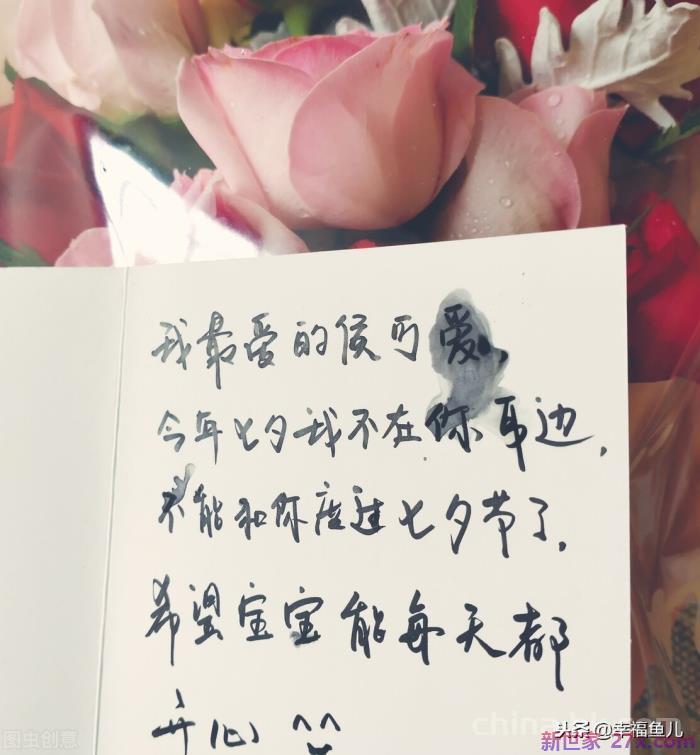 我最爱的侯可爱,
今年七夕我不在你耳边,
不能和你度过七夕节了.
希望宝宝能每天都
开心 ^^
图虫创意
头条@幸福鱼儿
新世家-27x.com